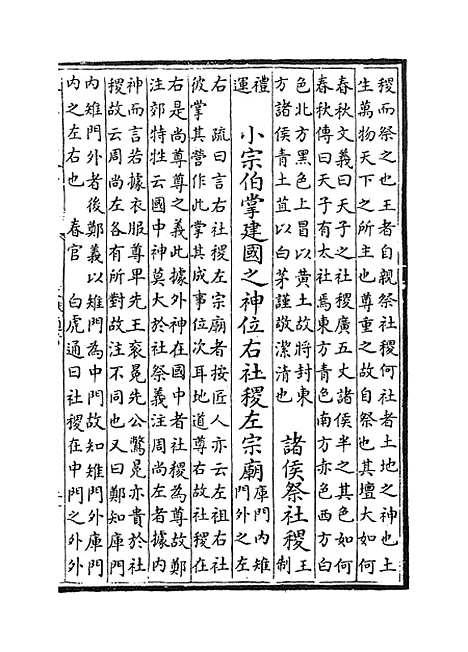 稷而祭之也王者自親祭社稷何社者土地之神也土
生萬物天下之所主也尊重之故自祭也其壇大如何
春秋文義曰天子之社稷廣五丈諸侯半之其色如何
春秋傳曰天子有太社焉東方青色南方赤色西方白
色北方黑色上冒以黄土故將封東
方諸侯青土苴以白茅謹敬潔清也
諸侯祭社稷 王制
禮運 小宗伯掌建國之神位右社稷左宗廟 庫門内雉門外之左
右 疏曰言右社稷左宗廟者按匠人亦云左祖右社
彼掌其營作此掌其成事位次耳地道尊右故社稷在
右是尚尊尊之義此據外神在國中者社稷為尊故鄭
注郊特牲云國中神莫大於社祭義注周尚左者據内
神而言若據衣服尊卑先王衮冕先公鷩冕亦貴於社
稷故云周尚左各有所對故注不同也又曰鄭知庫門
内雉門外者後鄭義以雉門為中門故知雉門外庫門
内之左右也 春官 白虎通曰社稷在中門之外外